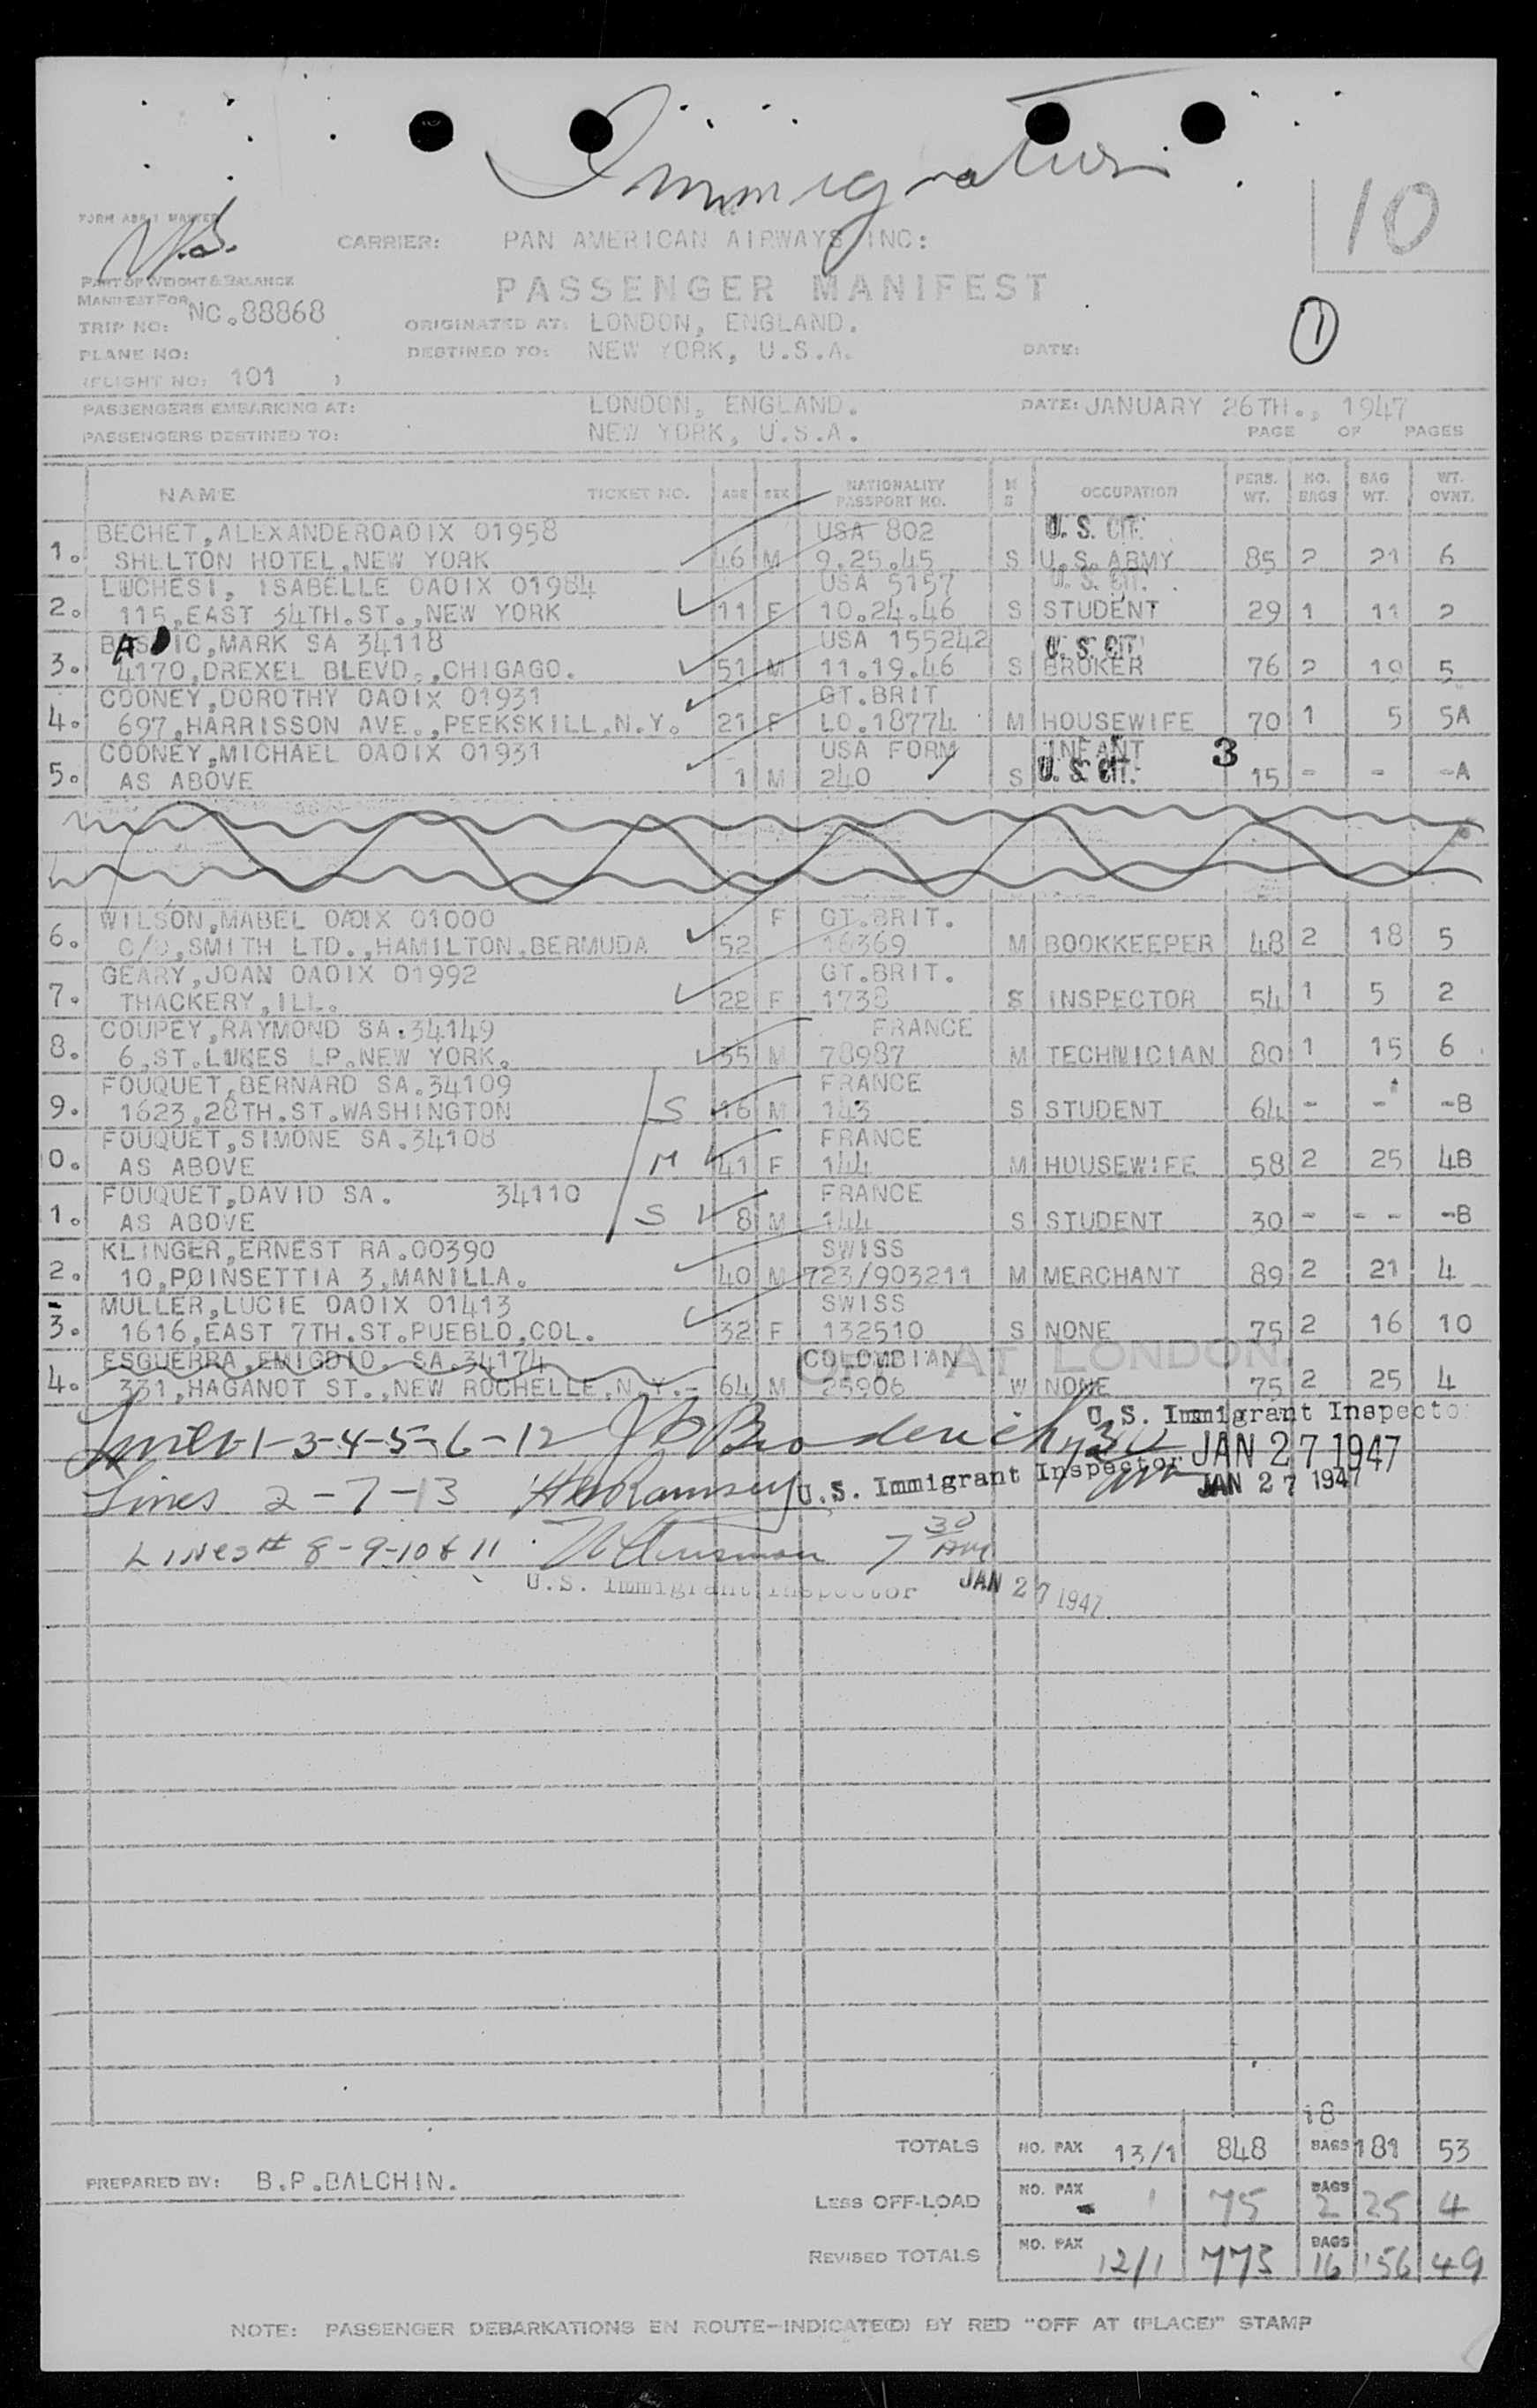 Immigration
10
FORM ABR-1 MASTER
CARRIER: PAN AMERICAN AIRWAYS INC:
PART OF WEIGHT & BALANCE
PASSENGER MANIFEST
MANIFEST FOR
TRIP NO: NC.88868
ORIGINATED AT: LONDON, ENGLAND.
1
PLANE NO:
DESTINED TO: NEW YORK, U.S.A. DATE:
(FLIGHT NO: 101 )
PASSENGERS EMBARKING AT: LONDON, ENGLAND. DATE: JANUARY 26TH., 1947
PASSENGERS DESTINED TO: NEW YORK, U.S.A. PAGE OF PAGES
NAME TICKET NO. AGE SEX NATIONALITY PASSPORT NO. M S OCCUPATION PERS. WT. NO. BAGS BAG WT. WT. OVNT.
BECHET,ALEXANDEROAOIX 01958 USA 802 U. S. CIT.
1. SHELTON HOTEL,NEW YORK 46 M 9.25.45 S U.S. ARMY 85 2 21 6
LUCHESI, ISABELLE OAOIX 01984 USA 5157 U. S. CIT.
2. 115,EAST 34TH.ST.,NEW YORK 11 F 10.24.46 S STUDENT 29 1 11 2
IC,MARK SA 34118 USA 155242 U. S. CIT.
3. 4170,DREXEL BLEVD.,CHIGAGO. 51 M 11.19.46 S BROKER 76 2 19 5
COONEY,DOROTHY OAOIX 01931 GT.BRIT
4. 697,HARRISSON AVE.,PEEKSKILL,N.Y. 21 F LO.18774 M HOUSEWIFE 70 1 5 5A
COONEY,MICHAEL OAOIX 01931 USA FORM INFANT 3
5. AS ABOVE 1 M 240 S U. S. CIT. 15 - - -A
WILSON,MABEL OAOIX 01000 F GT.BRIT.
6. C/O,SMITH LTD.,HAMILTON,BERMUDA 52 16369 M BOOKKEEPER 48 2 18 5
GEARY,JOAN OAOIX 01992 GT.BRIT.
7. THACKERY,ILL. 22 F 1738 S INSPECTOR 54 1 5 2
COUPEY,RAYMOND SA.34149 FRANCE
8. 6,ST.LUKES LP.NEW YORK. 35 M 78987 M TECHNICIAN 80 1 15 6
FOUQUET,BERNARD SA.34109 FRANCE
9. 1623,28TH.ST.WASHINGTON S 16 M 143 S STUDENT 64 - - -B
FOUQUET,SIMONE SA.34108 FRANCE
0. AS ABOVE M 41 F 144 M HOUSEWIFE 58 2 25 4B
FOUQUET,DAVID SA. 34110 FRANCE
1. AS ABOVE S 8 M 144 S STUDENT 30 - - - -B
KLINGER,ERNEST RA.00390 SWISS
2. 10,POINSETTIA 3,MANILLA. 40 M 723/903211 M MERCHANT 89 2 21 4
MULLER,LUCIE OAOIX 01413 SWISS
3. 1616,EAST 7TH.ST.PUEBLO,COL. 32 F 132510 S NONE 75 2 16 10
ESGUERRA,EMIGDIO. SA.34174 COLOMBIAN AT LONDON.
4. 331,HAGANOT ST.,NEW ROCHELLE,N.Y.- 64 M 25906 W NONE 75 2 25 4
U. S. Immigrant Inspector
Lines 1-3-4-5-6-12 JAN 27 1947
Lines 2-7-13 U.S. Immigrant Inspector JAN 27 1947
Lines # 8-9-10 & 11 7 30 AM
U.S. Immigrant Inspector JAN 27 1947
18
TOTALS NO. PAX 13/1 848 BAGS 181 53
PREPARED BY: B.P.BALCHIN.
LESS OFF-LOAD NO. PAX 1 75 BAGS 2 25 4
REVISED TOTALS NO. PAX 12/1 773 BAGS 16 156 49
NOTE: PASSENGER DEBARKATIONS EN ROUTE-INDICATE(D) BY RED "OFF AT (PLACE)" STAMP